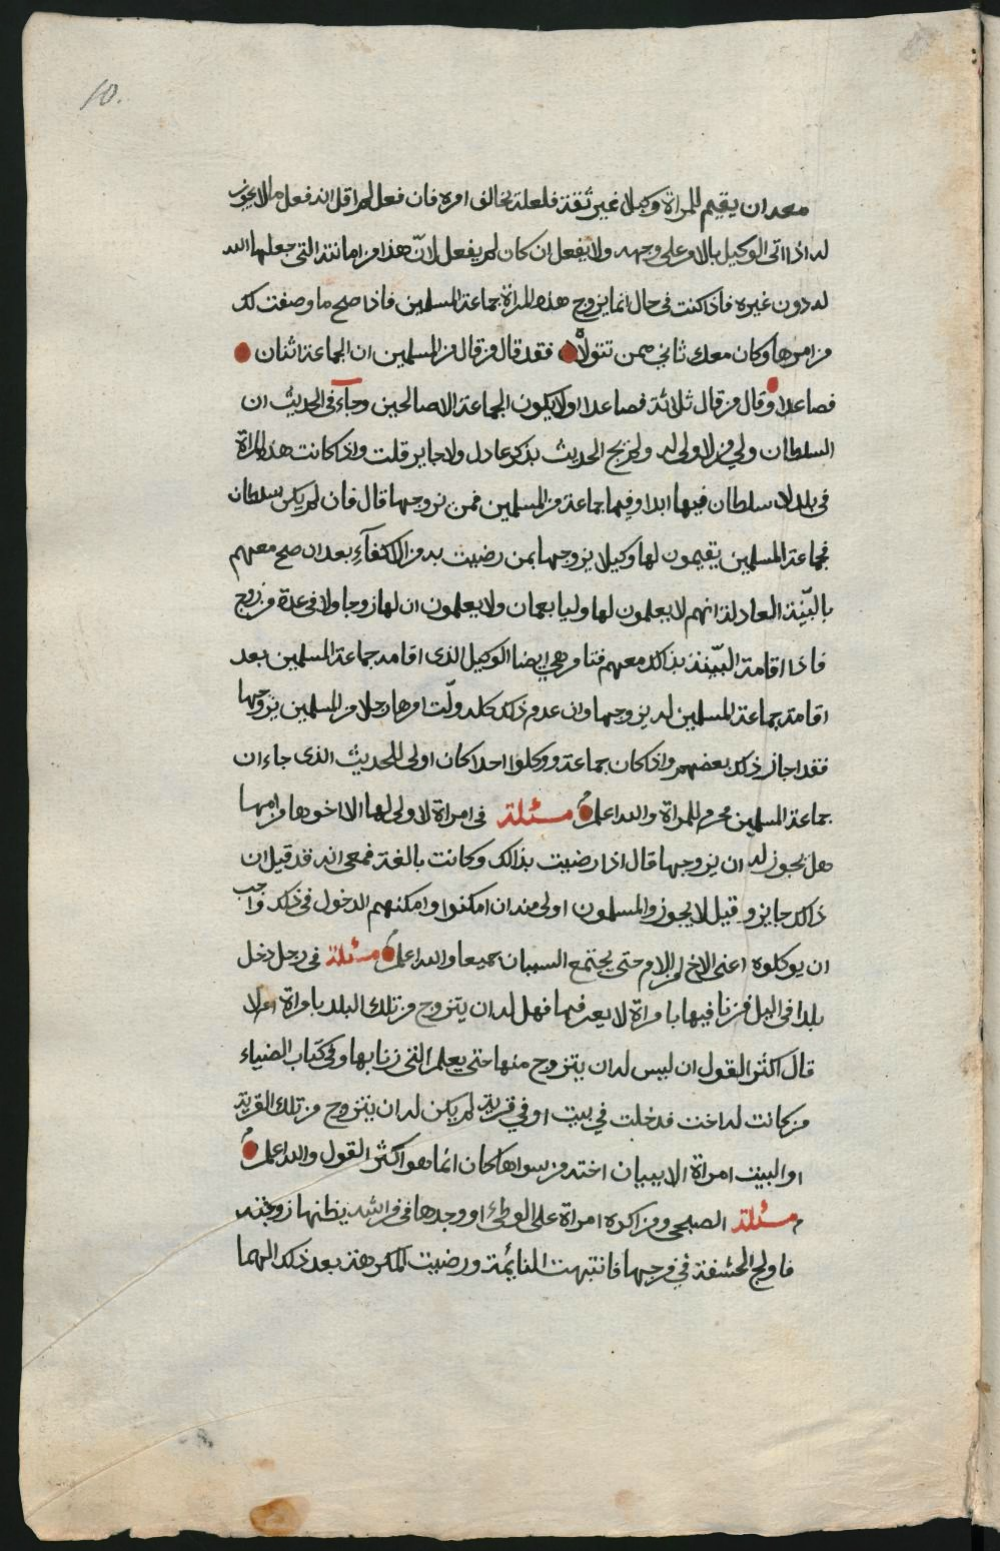 10.
معه ان يقيم للمراة وكيلا غير ثقة فلعله يخالف امره فان فعل لم اقل انه فعل ما لا يجوز
له اذا اتى الوكيل بالامر على وجهه ولا يفعل ان كان لم يفعل لانّ هذا من امانته التي جعلها الله
له دون غيره فاذا كنت في حال انما يزوج هذه المراة جماعة المسلمين فاذا صح ما وصفت لك
من امرها وكان معك ثاني ممن تتولاه فقد قال من قال من المسلمين ان الجماعة اثنان
فصاعدا وقال من قال ثلاثة فصاعدا ولا يكون الجماعة الا صالحين وجآء في الحديث ان
السلطان ولي من لا ولي له ولم يخرج الحديث بذكر عادل ولا جاير قلت واذا كانت هذه المراة
في بلد لا سلطان فيها ابدا وفيها جماعة من المسلمين فمن يزوجها قال فان لم يكن سلطان
فجماعة المسلمين يقيمون لها وكيلا يزوجها بمن رضيت به من الاكفآء بعد ان صح معهم
بالبيّنة العادلة انهم لا يعلمون لها وليا بعمان ولا يعلمون ان لها زوجا ولا في عدة من زوج
فاذا اقامة البيّنة بذلك معهم فتامرهي ايضا الوكيل الذى اقامه جماعة المسلمين بعد
اقامة جماعة المسلمين له يزوجها وان عدم ذلك كله ولّت امرها رجلا من المسلمين يزوجها
فقد اجاز ذلك بعضهم واذا كان جماعة ووكلوا احدا كان اولى للحديث الذى جاء ان
جماعة المسلمين محرم للمراة والله اعلم مسئلة في امراة لا ولي لها الا اخوها من امها
هل يجوز له ان يزوجها قال اذا رضيت بذالك وكانت بالغة فمعي انه قد قيل ان
ذالك جايز وقيل لا يجوز والمسلمون اولى منه ان امكنوا وامكنهم الدخول في ذلك واجب
ان يوكلوه اعني الاخ من الام حتى يجتمع السببان جميعا والله اعلم مسئلة في رجل دخل
بلدا في اليل فزنا فيها بامراة لا يعرفها فهل له ان يتزوج من تلك البلد بامراة ام لا
قال اكثر القول ان ليس له ان يتزوج منها حتى يعلم التي زنا بها وفي كتاب الضياء
من كانت له اخت فدخلت في بيت او في قرية لم يكن له ان يتزوج من تلك القرية
او البيت امراة الا ببيان اخته من سواها كان انما هو اكثر القول والله اعلم
مسئلة الصبحي ومن اكره امراة على الوطئ او وجدها في فراشه يظنها زوجته
فاولج الحشفة في فرجها فانتبهت النايئمة ورضيت المكرهة بعد ذلك الهما